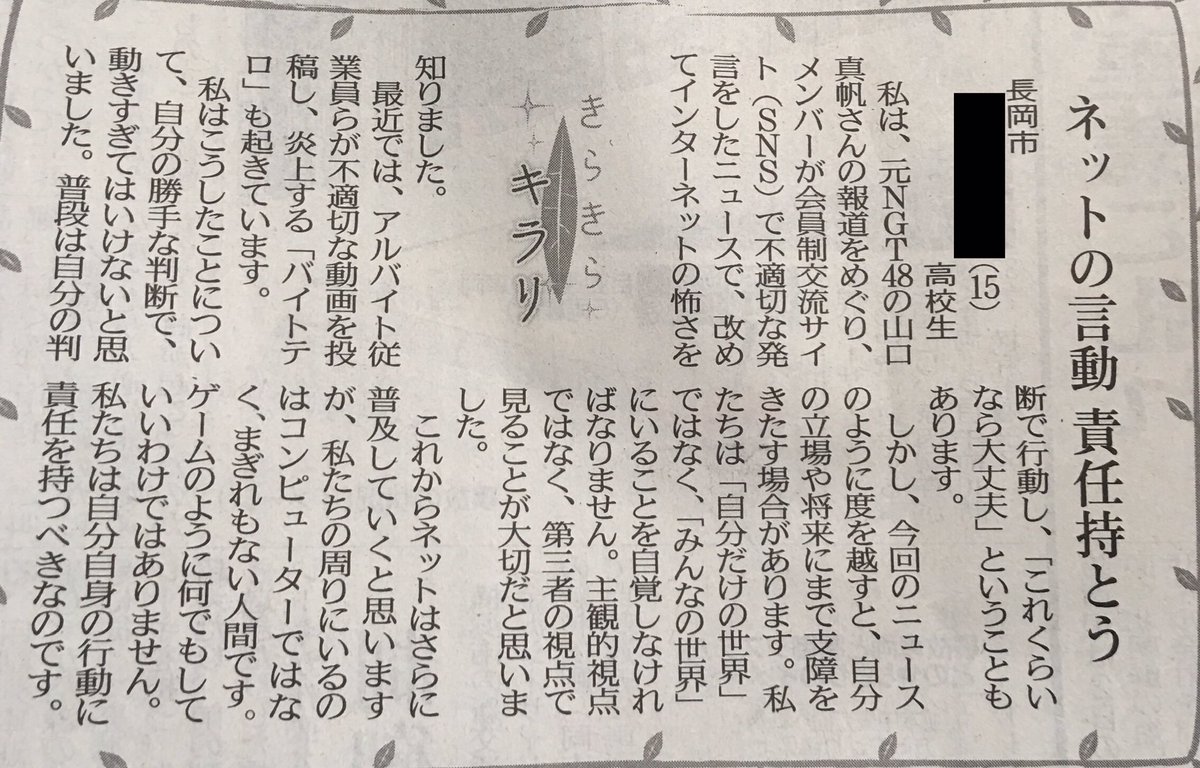 ネットの言動 責任持とう
長岡市
(15)
高校生
私は、元NGT48の山口
真帆さんの報道をめぐり、
メンバーが会員制交流サイ
ト(SNS)で不適切な発
言をしたニュースで、改め
てインターネットの怖さを
きらきら
キラリ
知りました。
最近では、アルバイト従
業員らが不適切な動画を投
稿し、炎上する「バイトテ
ロ」も起きています。
私はこうしたことについ
て、自分の勝手な判断で、
動きすぎてはいけないと思
いました。普段は自分の判
断で行動し、「これくらい
なら大丈夫」ということも
あります。
しかし、今回のニュース
のように度を越すと、自分
の立場や将来にまで支障を
きたす場合があります。私
たちは「自分だけの世界」
ではなく、「みんなの世界」
にいることを自覚しなけれ
ばなりません。主観的視点
ではなく、第三者の視点で
見ることが大切だと思いま
した。
これからネットはさらに
普及していくと思います
が、私たちの周りにいるの
はコンピューターではな
く、まぎれもない人間です。
ゲームのように何でもして
いいわけではありません。
私たちは自分自身の行動に
責任を持つべきなのです。